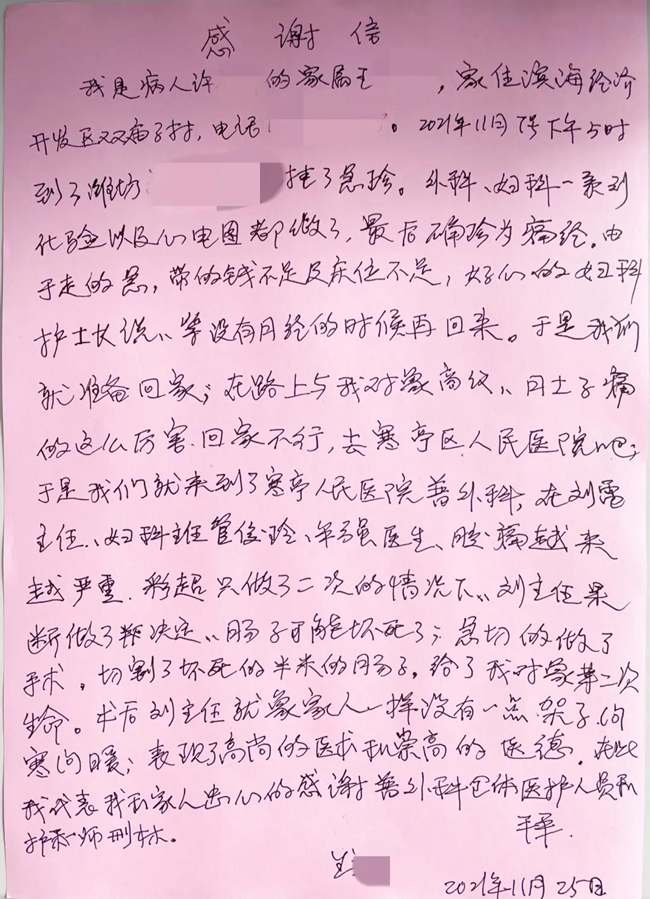 感 谢 信
我是病人许 的家属王 ,家住滨海经济
开发区双庙子村,电话 。2021年11月7号下午5时
到了潍坊 挂了急珍。外科、妇科一系列
化验以及心电图都做了,最后确珍为痛经.由
于走的急,带的钱不足及床位不足,好心的妇科
护士长说:等没有月经的时候再回来。于是我们
就准备回家;在路上与我对象商议:肚子痛
的这么厉害.回家不行,去寒亭区人民医院吧;
于是我们就来到了寒亭人民医院普外科,在刘
主任、妇科主任管 、 医生、腹痛越来
越严重.彩超只做了二次的情况下,刘主任果
断做了判决定,肠子可能坏死了;急切的做了
手术,切割了坏死的半米的肠子,给了我对象第二次
生命。术后刘主任就象家人一样没有一点架子问
寒问暖;表现了高尚的医术和崇高的医德.在此
我代表我和家人忠心的感谢普外科全体医护人员和
护 师 林。
2021年11月25日